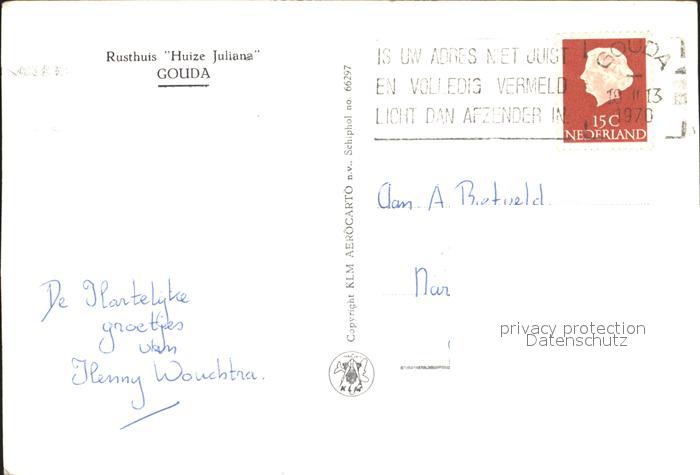 Rusthuis "Huize Juliana"
GOUDA
IS UW ADRES NIET JUIST
EN VOLLEDIG VERMELD
LICHT DAN AFZENDER IN
GOUDA
1970
15 C
NEDERLAND
Copyright KLM AEROCARTO n.v., Schiphol no. 66297
Aan A. Rietveld
De Hartelijke
groetjes
van
Henny Wouchtra.
privacy protection
Datenschutz
KLM